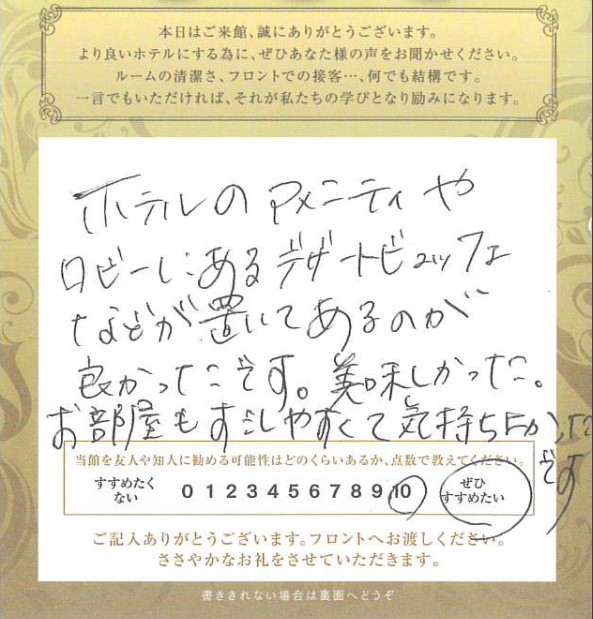 本日はご来館、誠にありがとうございます。
より良いホテルにする為に、ぜひあなた様の声をお聞かせください。
ルームの清潔さ、フロントでの接客…、何でも結構です。
一言でもいただければ、それが私たちの学びとなり励みになります。
ホテルのアメニティや
ロビーにあるデザートビュッフェ
などが置いてあるのが
良かったです。美味しかった。
お部屋もすごしやすくて気持ちよかった
です
当館を友人や知人に勧める可能性はどのくらいあるか、点数で教えてください。
すすめたくない 0 1 2 3 4 5 6 7 8 9 10 ぜひすすめたい
ご記入ありがとうございます。フロントへお渡しください。
ささやかなお礼をさせていただきます。
書ききれない場合は裏面へどうぞ